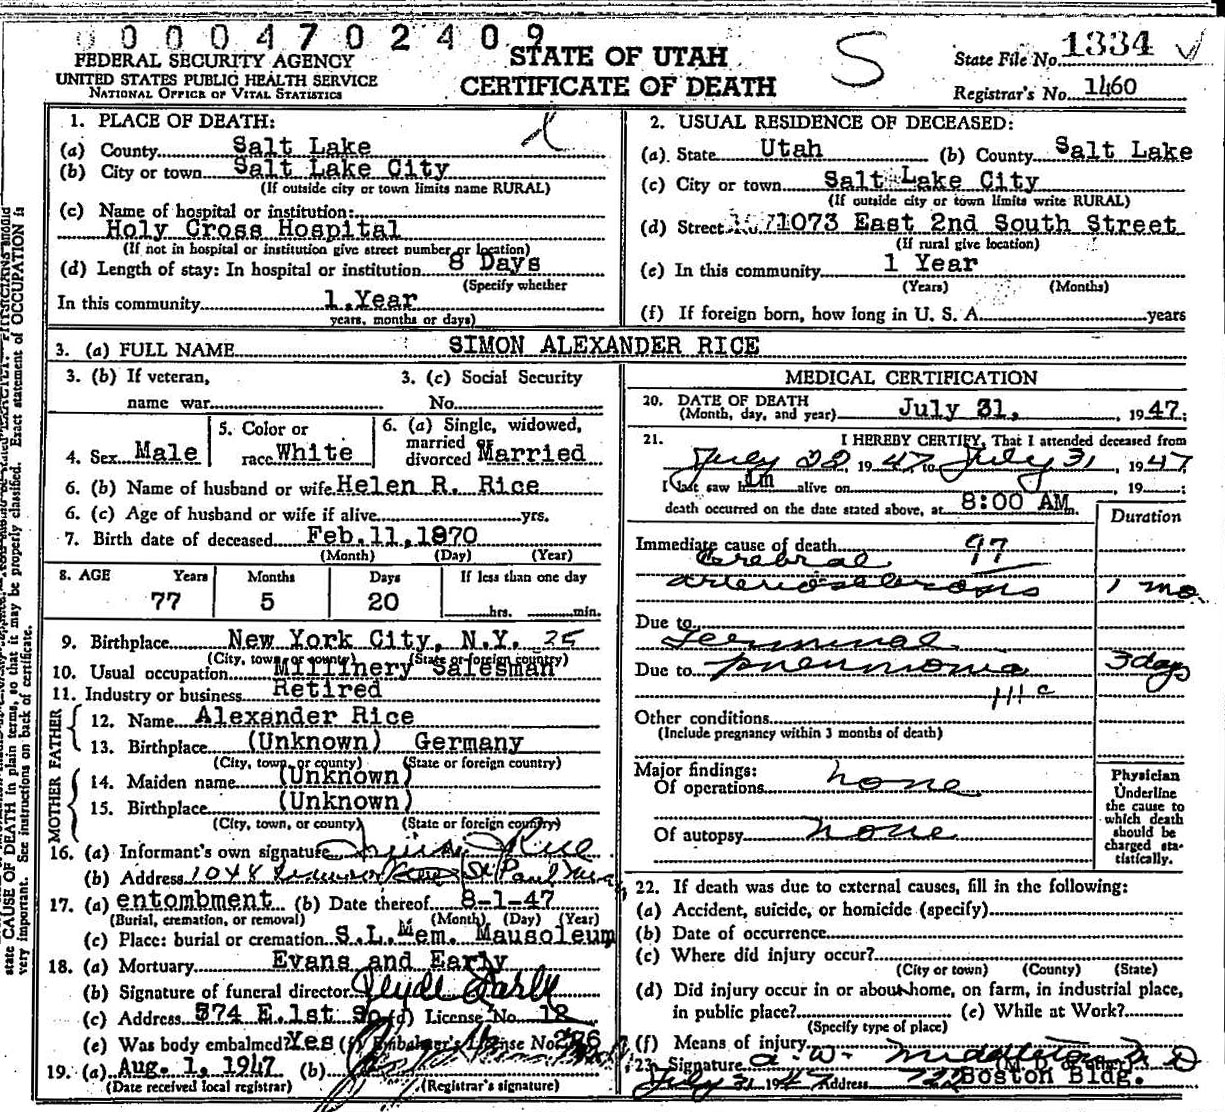 0 0 0 0 4 7 0 2 4 0 9
FEDERAL SECURITY AGENCY
UNITED STATES PUBLIC HEALTH SERVICE
NATIONAL OFFICE OF VITAL STATISTICS
STATE OF UTAH
CERTIFICATE OF DEATH
S
State File No. 1334
Registrar's No. 1460
1. PLACE OF DEATH:
(a) County Salt Lake
(b) City or town Salt Lake City
(If outside city or town limits name RURAL)
(c) Name of hospital or institution:
Holy Cross Hospital
(If not in hospital or institution give street number or location)
(d) Length of stay: In hospital or institution 8 Days
(Specify whether
In this community 1 Year
years, months or days)
2. USUAL RESIDENCE OF DECEASED:
(a) State Utah (b) County Salt Lake
(c) City or town Salt Lake City
(If outside city or town limits write RURAL)
(d) Street 1073 East 2nd South Street
(If rural give location)
(e) In this community 1 Year
(Years) (Months)
(f) If foreign born, how long in U. S. A. years
3. (a) FULL NAME SIMON ALEXANDER RICE
3. (b) If veteran, 3. (c) Social Security
name war No.
4. Sex Male
5. Color or race White
6. (a) Single, widowed, married or divorced Married
6. (b) Name of husband or wife Helen R. Rice
6. (c) Age of husband or wife if alive yrs.
7. Birth date of deceased Feb. 11, 1870
(Month) (Day) (Year)
8. AGE Years Months Days If less than one day
77 5 20 hrs. min.
9. Birthplace New York City, N.Y. 25
(City, town or county) (State or foreign country)
10. Usual occupation Millinery Salesman
11. Industry or business Retired
FATHER
12. Name Alexander Rice
13. Birthplace (Unknown) Germany
(City, town, or county) (State or foreign country)
MOTHER
14. Maiden name (Unknown)
15. Birthplace (Unknown)
(City, town, or county) (State or foreign country)
16. (a) Informant's own signature Rice
(b) Address 1048 St Paul
17. (a) entombment (b) Date thereof 8-1-47
(Burial, cremation, or removal) (Month) (Day) (Year)
(c) Place: burial or cremation S.L. Mem. Mausoleum
18. (a) Mortuary Evans and Early
(b) Signature of funeral director Clyde Early
(c) Address 574 E. 1st So (d) License No. 12
(e) Was body embalmed? Yes (f) Embalmer's License No.
19. (a) Aug. 1, 1947 (b)
(Date received local registrar) (Registrar's signature)
MEDICAL CERTIFICATION
20. DATE OF DEATH
(Month, day, and year) July 31, 1947:
21. I HEREBY CERTIFY, That I attended deceased from
July 22, 1947 to July 31, 1947
I last saw him alive on , 19 :
death occurred on the date stated above, at 8:00 AM m.
Duration
Immediate cause of death 97
Cerebral
arteriosclerosis 1 mo.
Due to
Terminal
Due to pneumonia 3 days
111c
Other conditions
(Include pregnancy within 3 months of death)
Major findings:
Of operations none
Of autopsy none
Physician
Underline
the cause to
which death
should be
charged sta-
tistically.
22. If death was due to external causes, fill in the following:
(a) Accident, suicide, or homicide (specify)
(b) Date of occurrence
(c) Where did injury occur?
(City or town) (County) (State)
(d) Did injury occur in or about home, on farm, in industrial place,
in public place? (e) While at Work?
(Specify type of place)
(f) Means of injury
23. Signature A. W. Middleton M D
July 31 1947 Address 722 Boston Bldg.
state CAUSE OF DEATH in plain terms, so that it may be properly classified. Exact statement of OCCUPATION is
very important. See instructions on back of certificate.